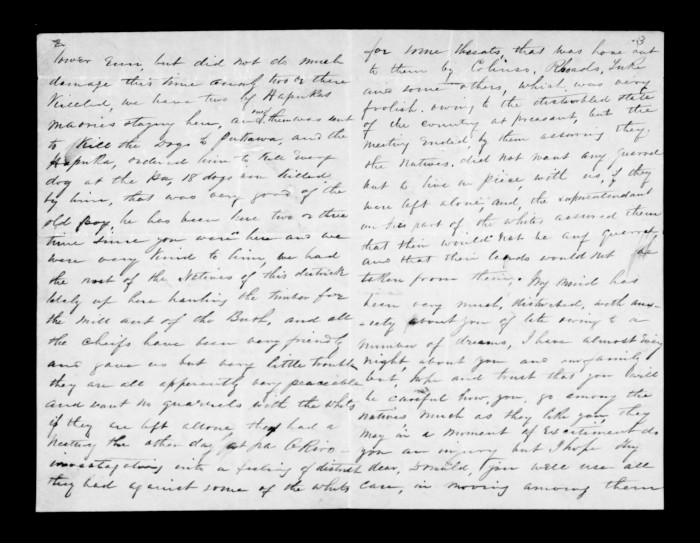 2
lower Run, but did not do much
damage this time only two or three
Killed, we have two of Hapukes
Maories staying here, and one of them was sent
to Kill the Dogs to Puttawa, and the
Hapuka, ordered him to Kill Every
dog at the Pa, 18 dogs were killed
by him, that was very good of the
old Boy, he has been here two or three
time since you were here and we
were very kind to him, we had
the most of the Natives of this district
lately up here hauling the timber for
the Mill out of the Bush, and all
the cheifs have been very friendly
and gave us but very little trouble
they are all apparently very peaceable
and want no quarrels with the whites
if they are left allone, they had a
Meeting the other day at pa
with a feeling of distrust
they had against some of the whites
3
for some threats, that was hove out
to them by Colinso, Rhoads, Luke
and some others, which was very
foolish owing to the disturbled state
of the country at preasant, but the
meeting Ended by them assuring they
the Natives did not want any quarrel
but to live in piece, with us, if they
were left alone, and, the superitendant
on his part of the whites assured them
that their would not be any quarrel,
and that their lands would not be
taken from them, My Mind has
been very much, disturbed, with anx-
-iety about you of late owing to a
number of dreams, I have almost Every
night about you and our family
but, hope and trust that you will
be careful how, you, go among the
natives, much as they like you, they
May in a moment of Excitement do
you an injury but I hope My
dear, Donald, you will use all
care, in moving among them